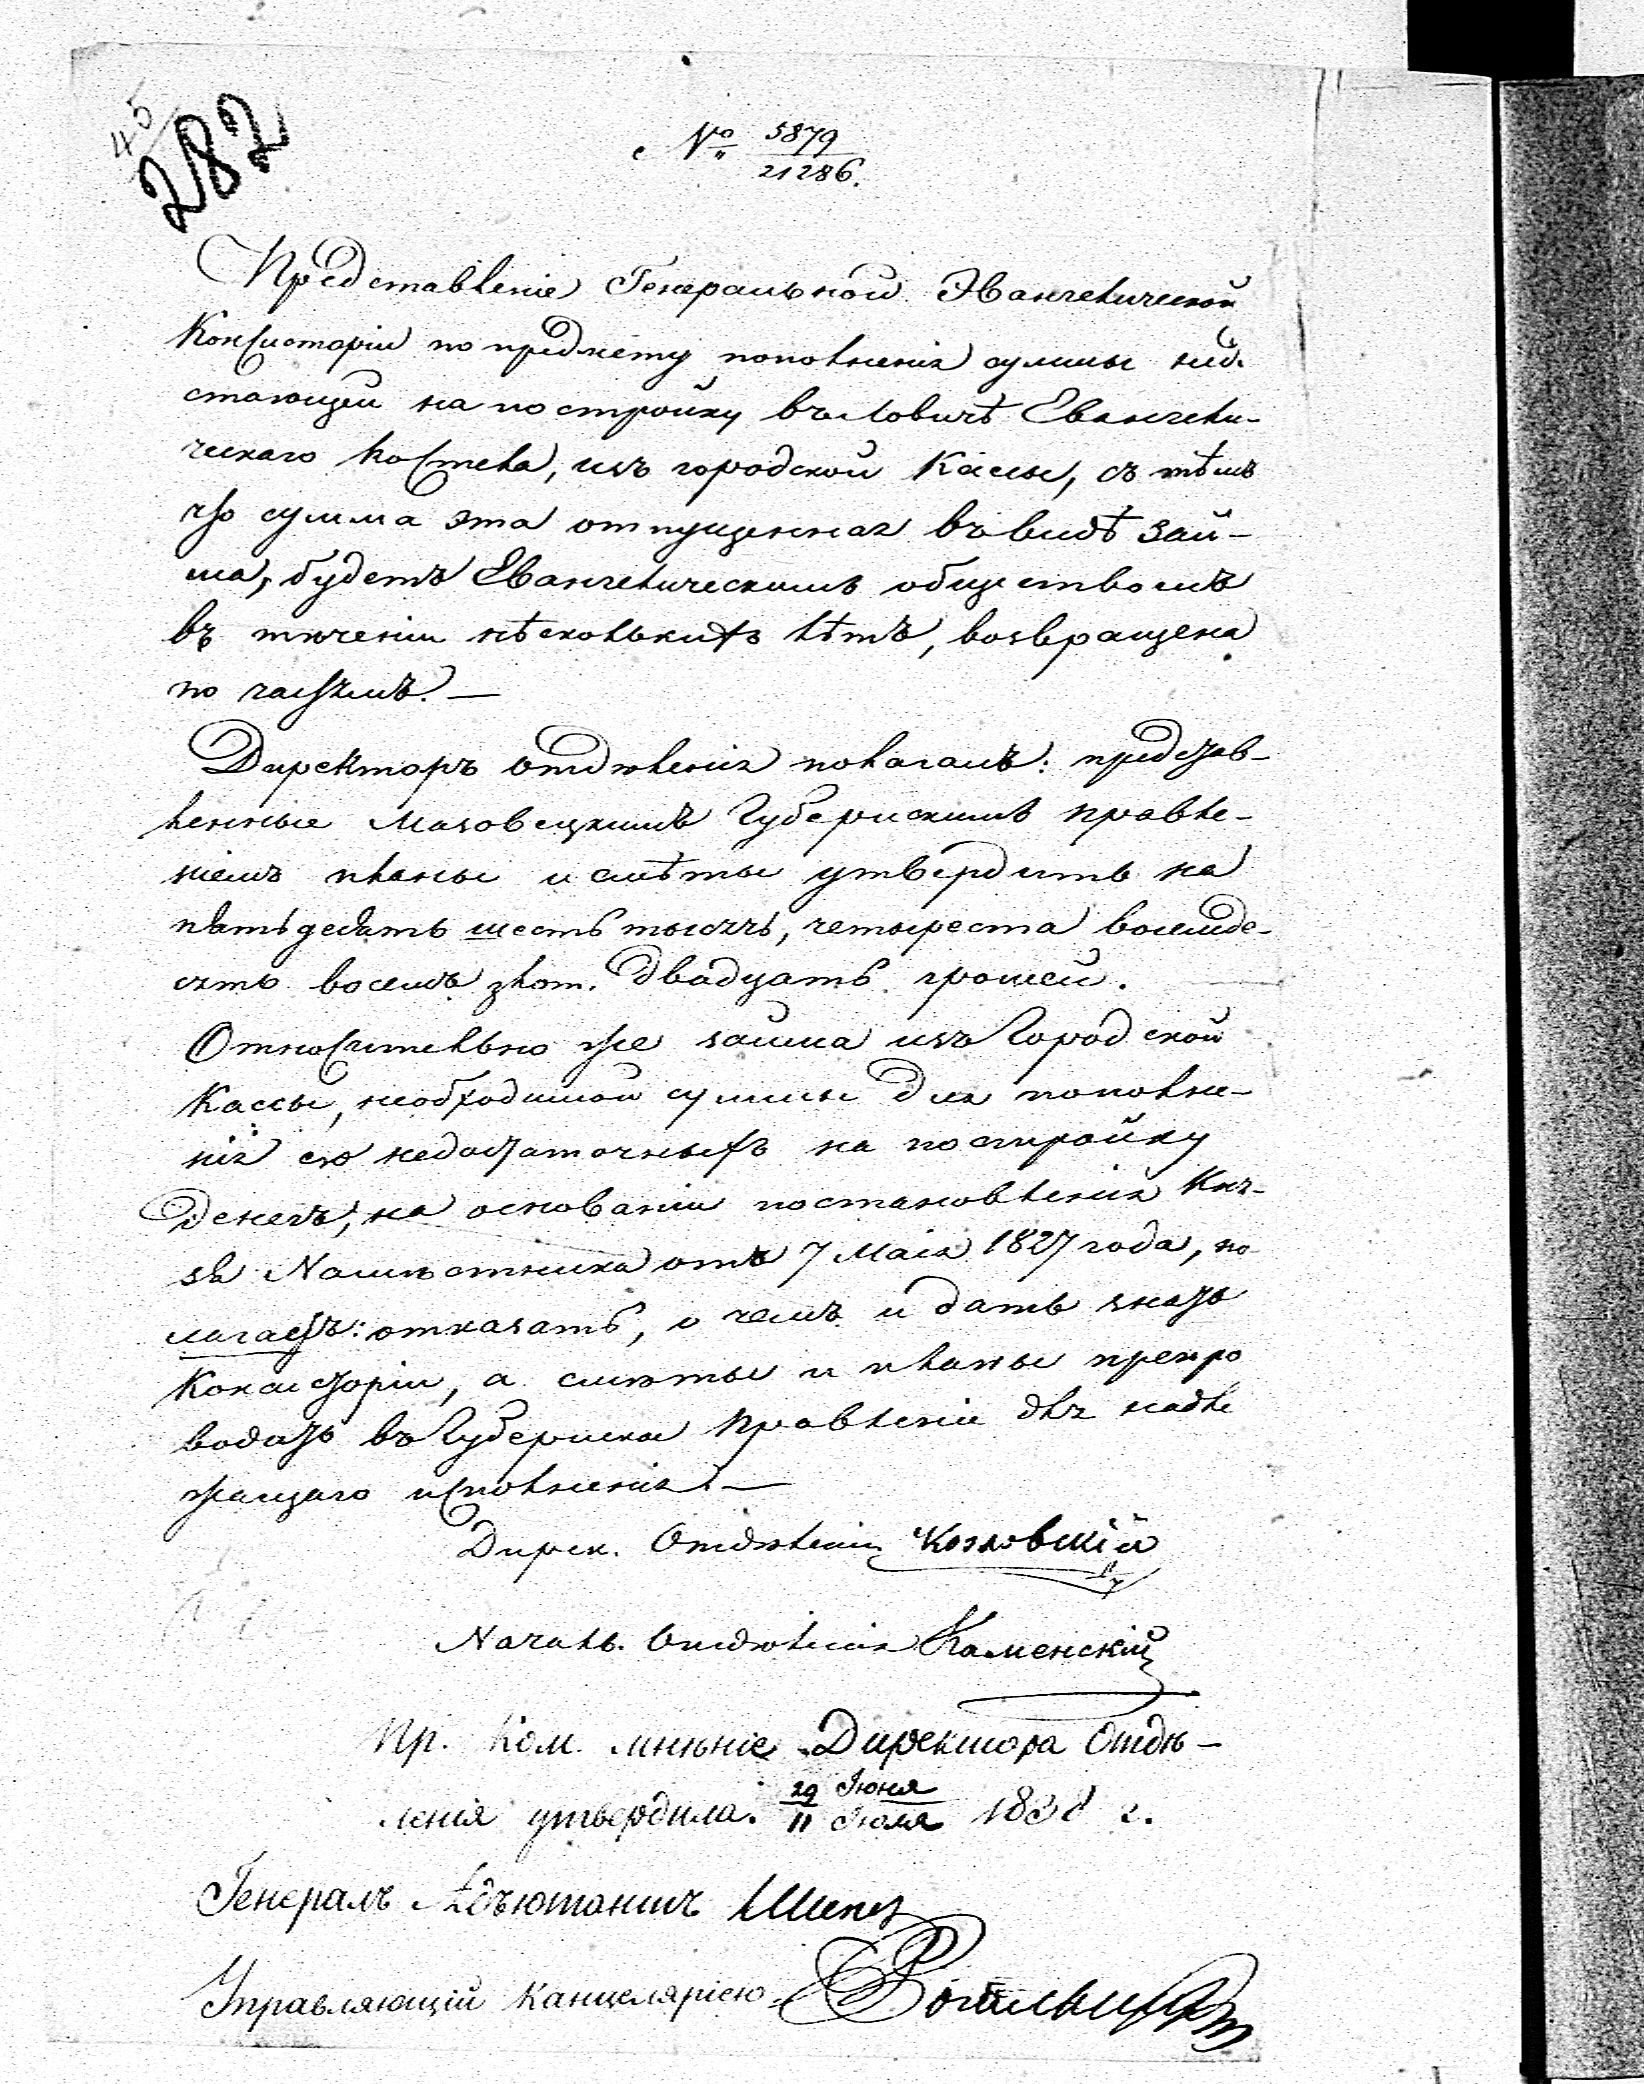 45
282
№ 5879
21286.
Представленіе Генеральной Эвангелической
Консисторіи по предмету пополненія суммы недо-
стающей на постройку въ Ловичѣ Евангели-
ческаго костела, изъ городской Кассы, съ тѣмъ
что сумма эта отпущенная въ видѣ зай-
ма, будетъ Евангелическимъ обществомъ
въ теченіи нѣсколькихъ лѣтъ, возвращена
по частямъ. —
Директоръ Отдѣленія полагалъ: представ-
ленные Мазовецкимъ Губернскимъ Правле-
ніемъ планы и смѣты утвердить на
пятьдесятъ шесть тысячъ, четыреста восемде-
сятъ восемь злот. двадцать грошей.
Относительно же займа изъ Городской
Кассы, необходимой суммы для пополне-
нія ею недостаточныхъ на постройку
денегъ, на основаніи постановленія Кня-
зя Намѣстника отъ 7 Маія 1827 года, по-
лагаетъ: отказать, о чемъ и дать знать
Консисторіи, а смѣты и планы препро
водить въ Губернское Правленіе для надле
жащаго исполненія. —
Дирек. Отдѣленія Козловскій
Началь. Отдѣленія Каменскій
Пр. Ком. мнѣніе Директора Отдѣ-
ленія утвердила. 29 Іюня
11 Іюля 1838 г.
Генералъ Адъютантъ Шипов
Управляющій Канцеляріею